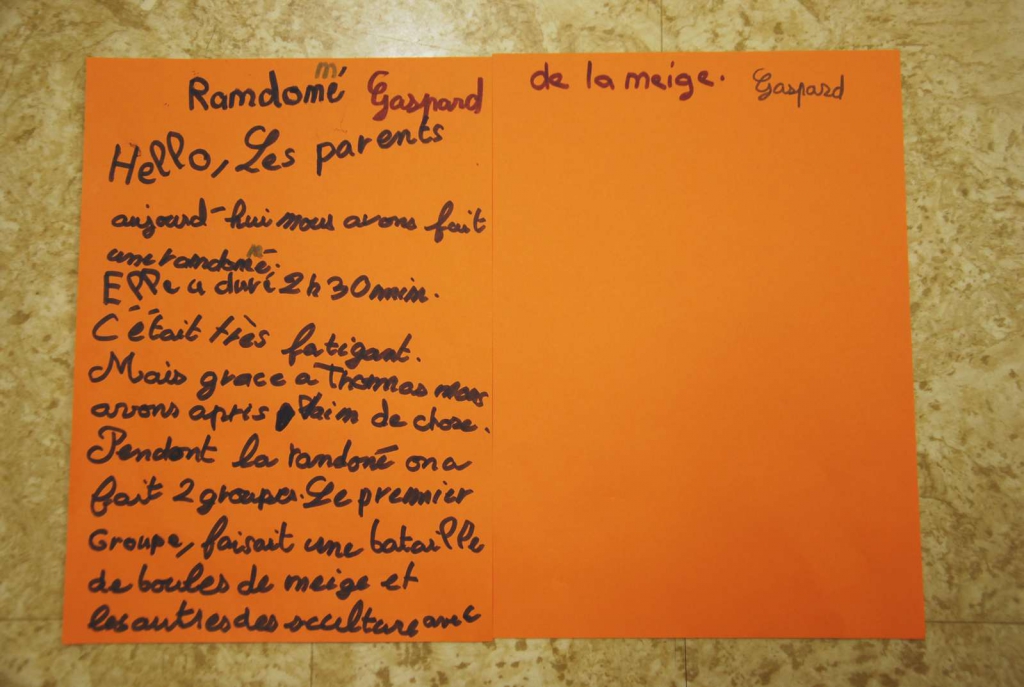 Randonné Gaspard
Hello, Les parents
aujourd-hui nous avons fait
une randonné.
Elle a duré 2h30min.
C'était très fatigant.
Mais grace a Thomas nous
avons apris plaim de chose.
Pendant la randoné on a
fait 2 groupes. Le premier
Groupe, faisait une bataille
de boules de neige et
les autres des scculture avec
de la neige. Gaspard